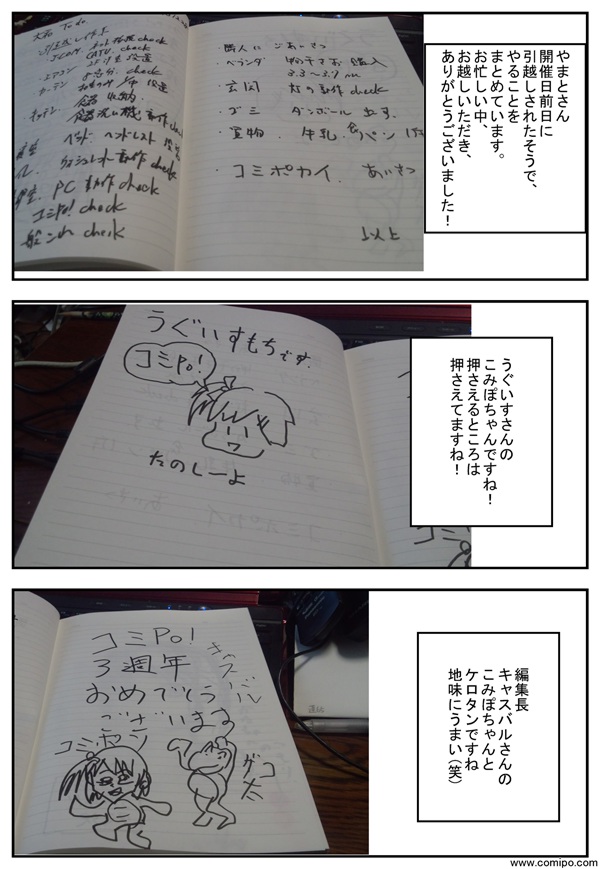 やまとさん
開催日前日に
引越しされたそうで、
やることを
まとめています。
お忙しい中、
お越しいただき、
ありがとうございました!
大和 To do.
エアコン
カーテン
キッチン
食器 収納
食器洗い機 動作check
ベッド ヘッドレスト
ウォシュレット動作check
PC 動作check
コミPo! check
艦これ check
・隣人に ごあいさつ
・ベランダ 物干さお 購入
・玄関 灯の動作check
・ゴミ ダンボール 出す.
・買物. 牛乳 & パン
・コミポカイ. あいさつ
以上
うぐいすさんの
こみぽちゃんですね!
押さえるところは
押さえてますね!
うぐいすもちです.
コミPo!
たのしーよ
編集長
キャスバルさんの
こみぽちゃんと
ケロタンですね
地味にうまい(笑)
コミPo!
3週年
おめでとう
ございます
キャスバル
コミヤン
ゲコ太
www.comipo.com